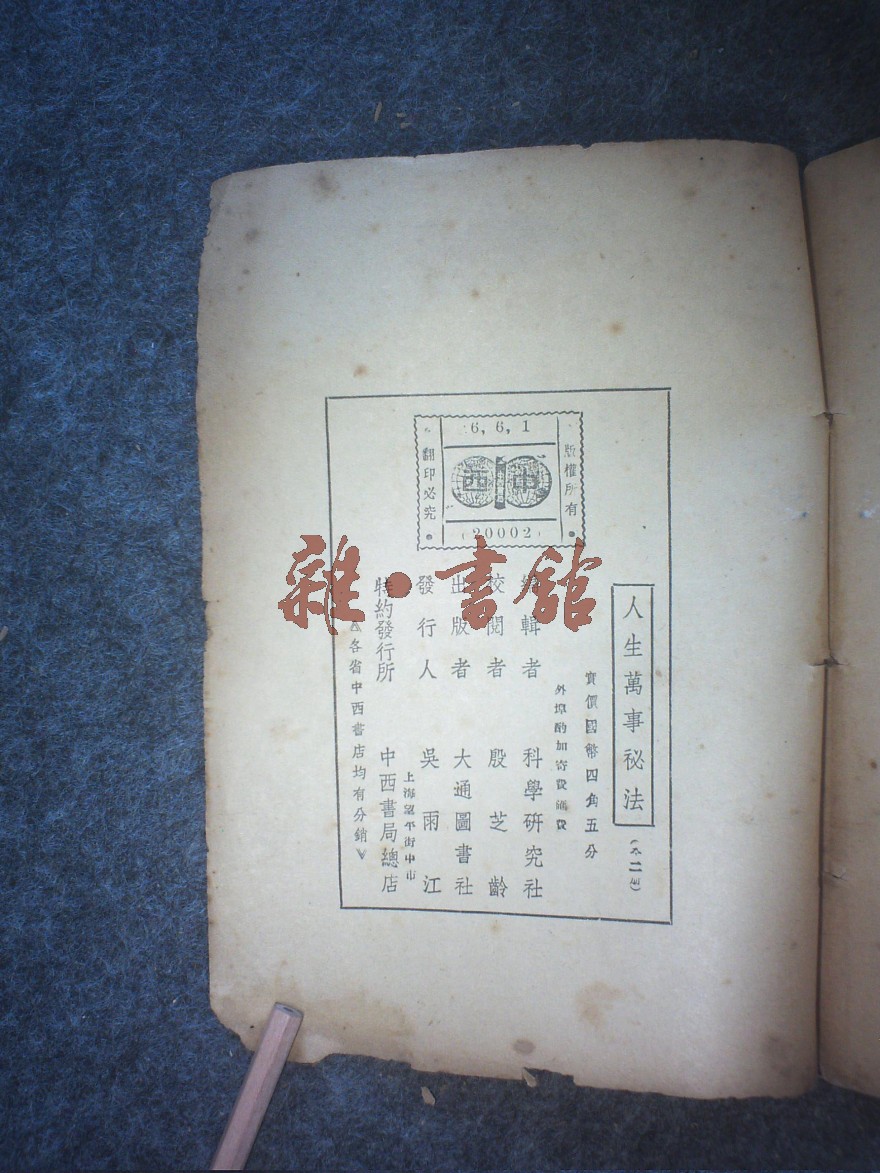 人生萬事祕法
（全二册）
實價國幣四角五分
外埠酌加寄費匯費
編輯者 科學研究社
校閱者 殷芝齡
出版者 大通圖書社
發行人 吳雨江
上海望平街中市
特約發行所 中西書局總店
各省中西書店均有分銷
6,6,1
版權所有
中西
翻印必究
20002
雜·書館